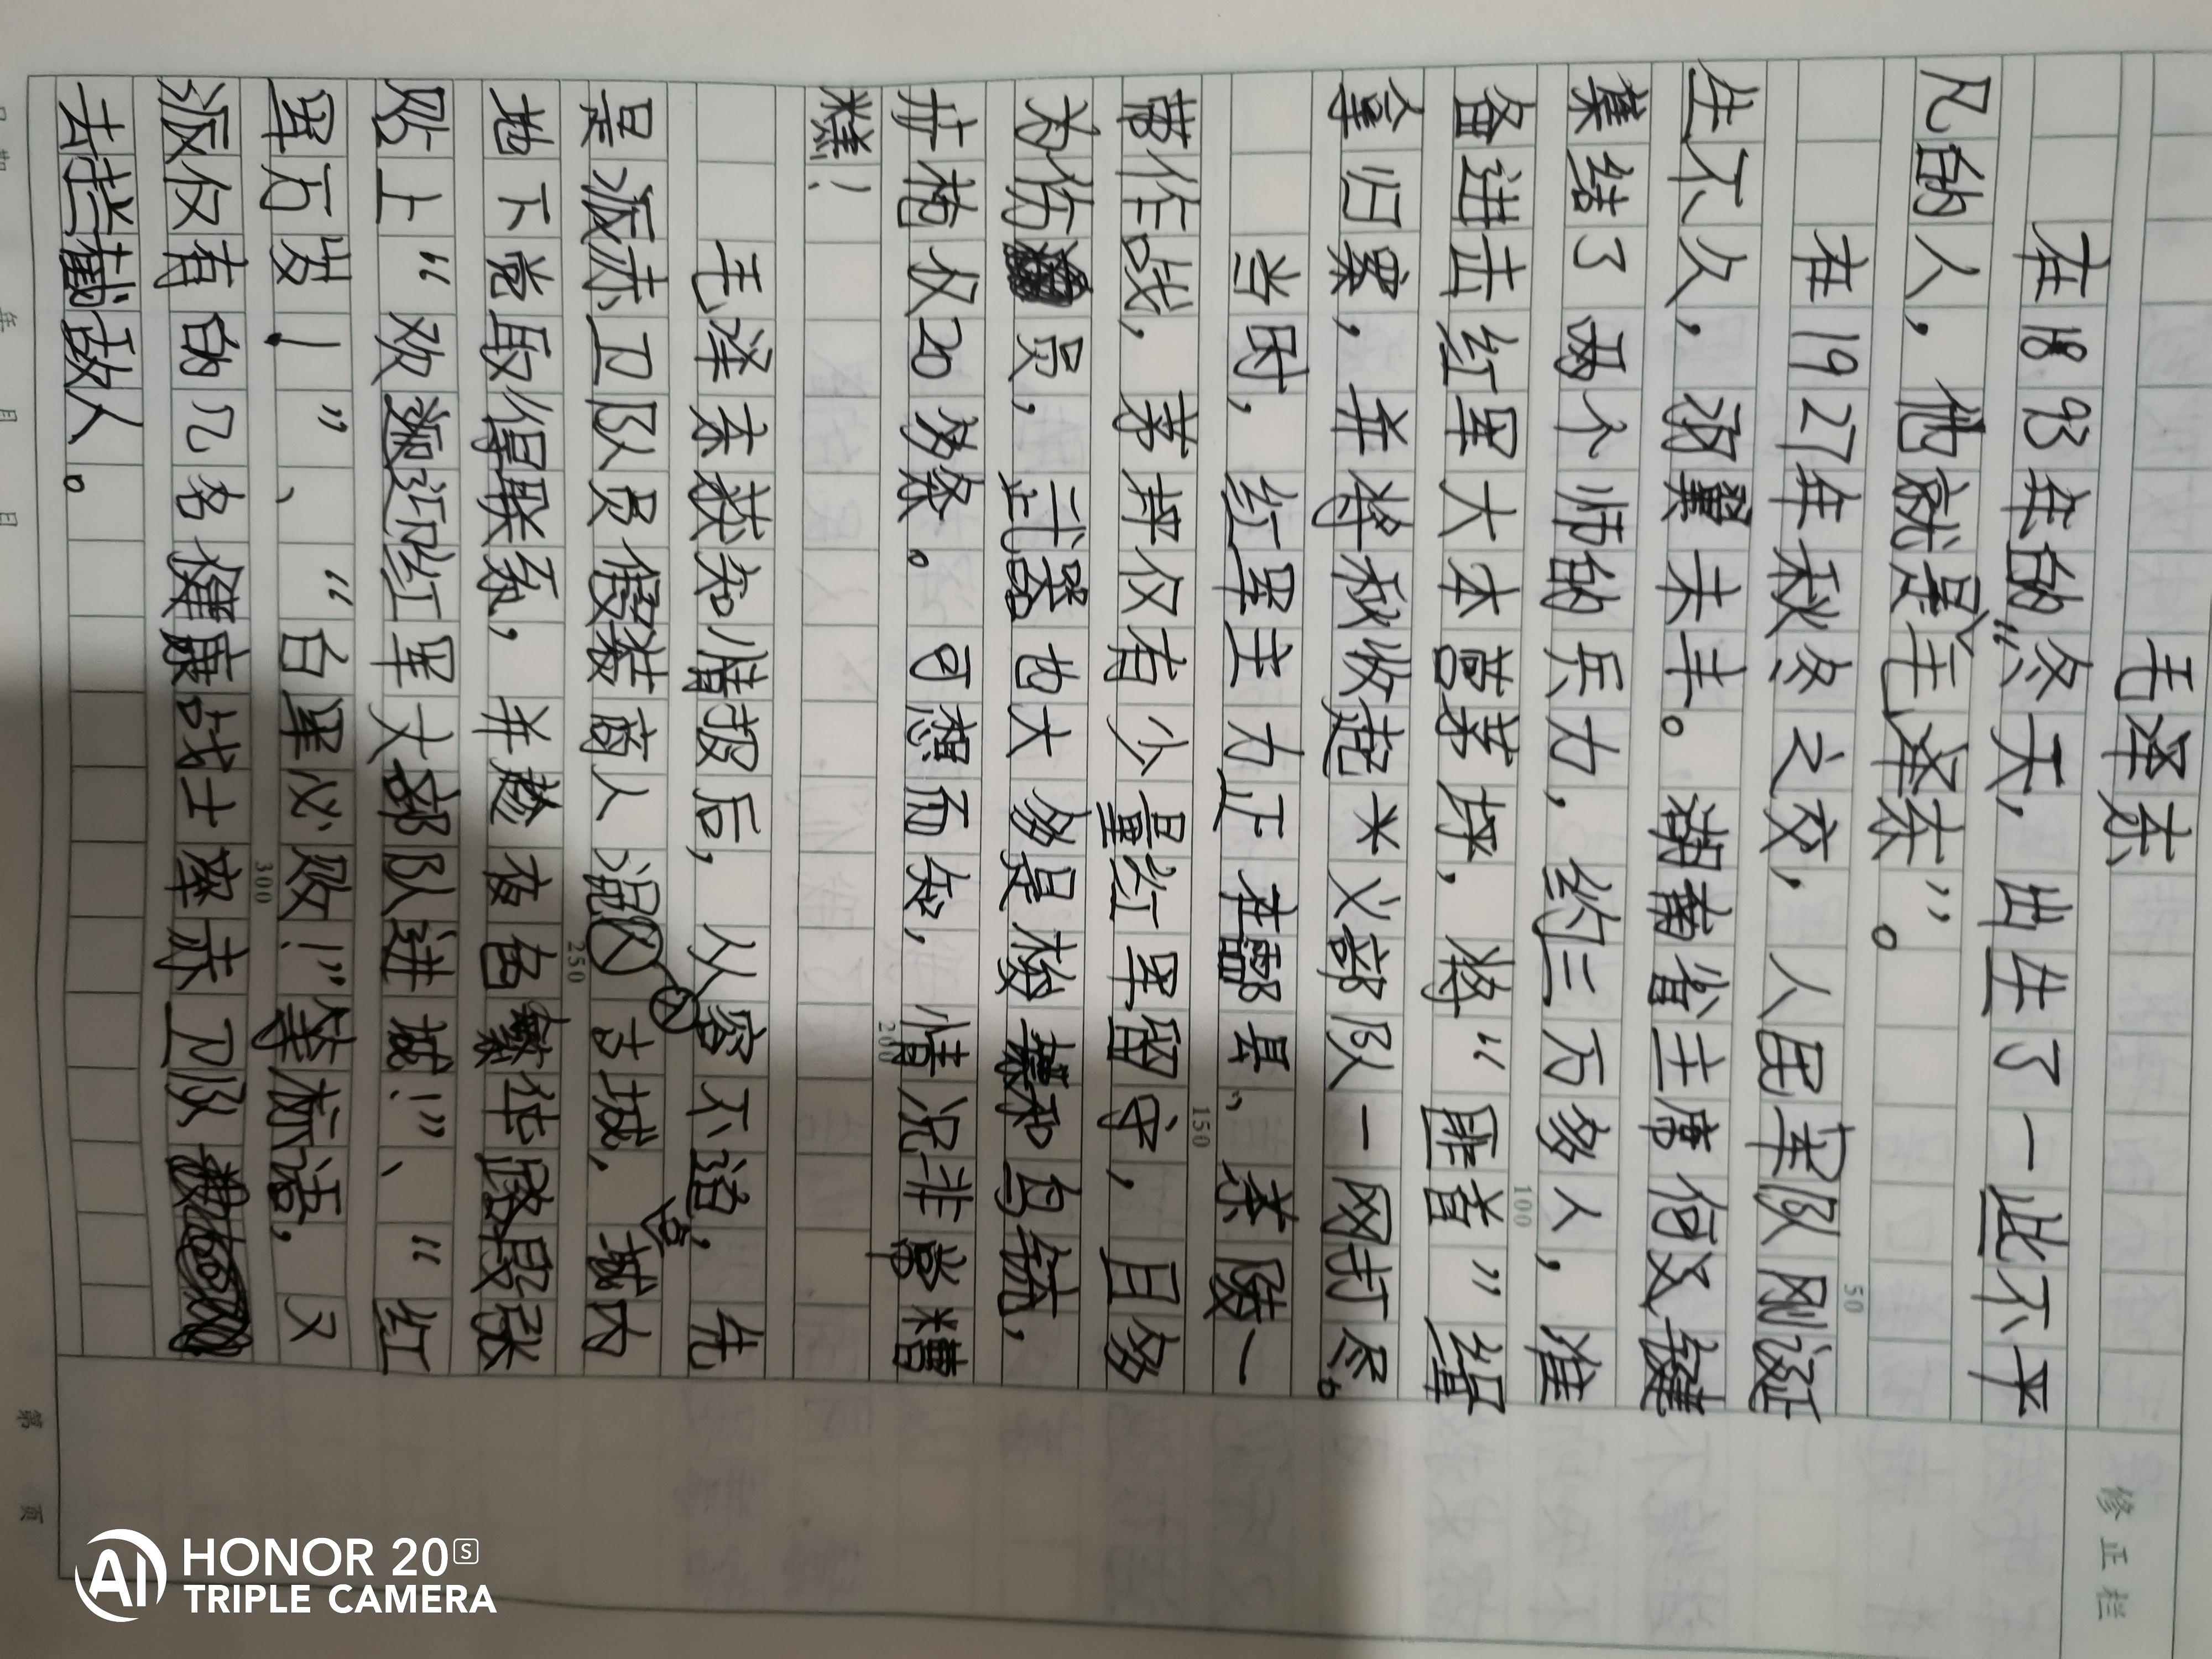 毛泽东
在1893年的冬天，出生了一些不平
凡的人，他就是“毛泽东”。
在1927年秋冬之交，人民军队刚诞
生不久，羽翼未丰。湖南省主席何及键
集结了两个师的兵力，约三万多人，准
备进击红军大本营茅坪，将“匪首”缉
拿归案，并将秋收起义部队一网打尽。
当时，红军主力正在酃县、茶陵一
带作战，茅坪仅有少量红军留守，且多
为伤员，武器也大多是梭镖和鸟铳，
井枪仅20多条。可想而知，情况非常糟
糕！
毛泽东获知情报后，从容不迫，先
是派赤卫队员假装商人混入古城，城内
地下党取得联系，并趁夜色繁华路段张
贴上“欢迎红军大部队进城！”、“红
军万岁！”、“白军必败！”等标语，又
派仅有的几名健康战士率赤卫队
去拦截敌人。
50
100
150
200
250
300
修正栏
日期 年 月 日
第 页
HONOR 20S
TRIPLE CAMERA
AI